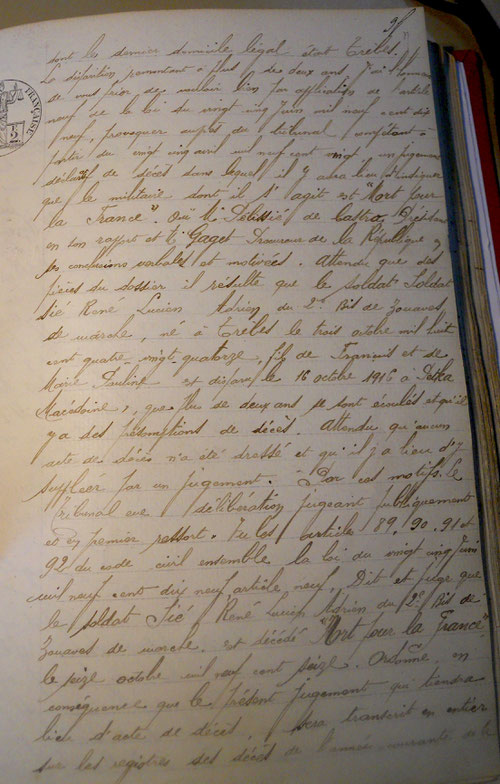 dont le dernier domicile légal était Trèbes.
La disparition remontant à plus de deux ans, J'ai l'honneur
de vous prier de vouloir bien par application de l'article
neuf de la loi du vingt cinq Juin mil neuf cent dix
neuf, provoquer auprès du tribunal compétant à
partir du vingt cinq avril mil neuf cent vingt un jugement
déclaratif de décès dans lequel il y aura lieu d'indiquer
que le militaire dont il s'agit est "Mort pour
la France". Ouï M. de Castro, Président
en son rapport et M. Gaget Procureur de la République
ses conclusions verbales et motivées. Attendu que des
pièces du dossier il résulte que le soldat Soldat
Sié René Lucien Adrien du 2e Bis de Zouaves
de marche, né à Trèbes le trois octobre mil huit
cent quatre-vingt-quatorze, fils de François et de
Marie Pauline est disparu le 16 octobre 1916 à Petka
Macédoine, que plus de deux ans se sont écoulés et qu'il
y a des présomptions de décès. Attendu qu'aucun
acte de décès n'a été dressé et qu'il y a lieu d'y
suppléer par un jugement. Par ces motifs, le
Tribunal délibération jugeant publiquement
et en premier ressort. Vu les article 89. 90. 91 et
92 du code civil ensemble la loi du vingt cinq Juin
mil neuf cent dix neuf, article neuf, Dit et juge que
le soldat Sié René Lucien Adrien du 2e Bis de
Zouaves de marche est décédé "Mort pour la France"
le seize octobre mil neuf cent seize. Ordonne, en
conséquence que le présent jugement qui tiendra
lieu d'acte de décès, sera transcrit en entier
sur les registres des décès de l'année courante de la
FRANÇAISE